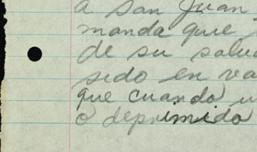 a San Juan
manda que
de su salud
sido en va
que cuando u
o deprimido